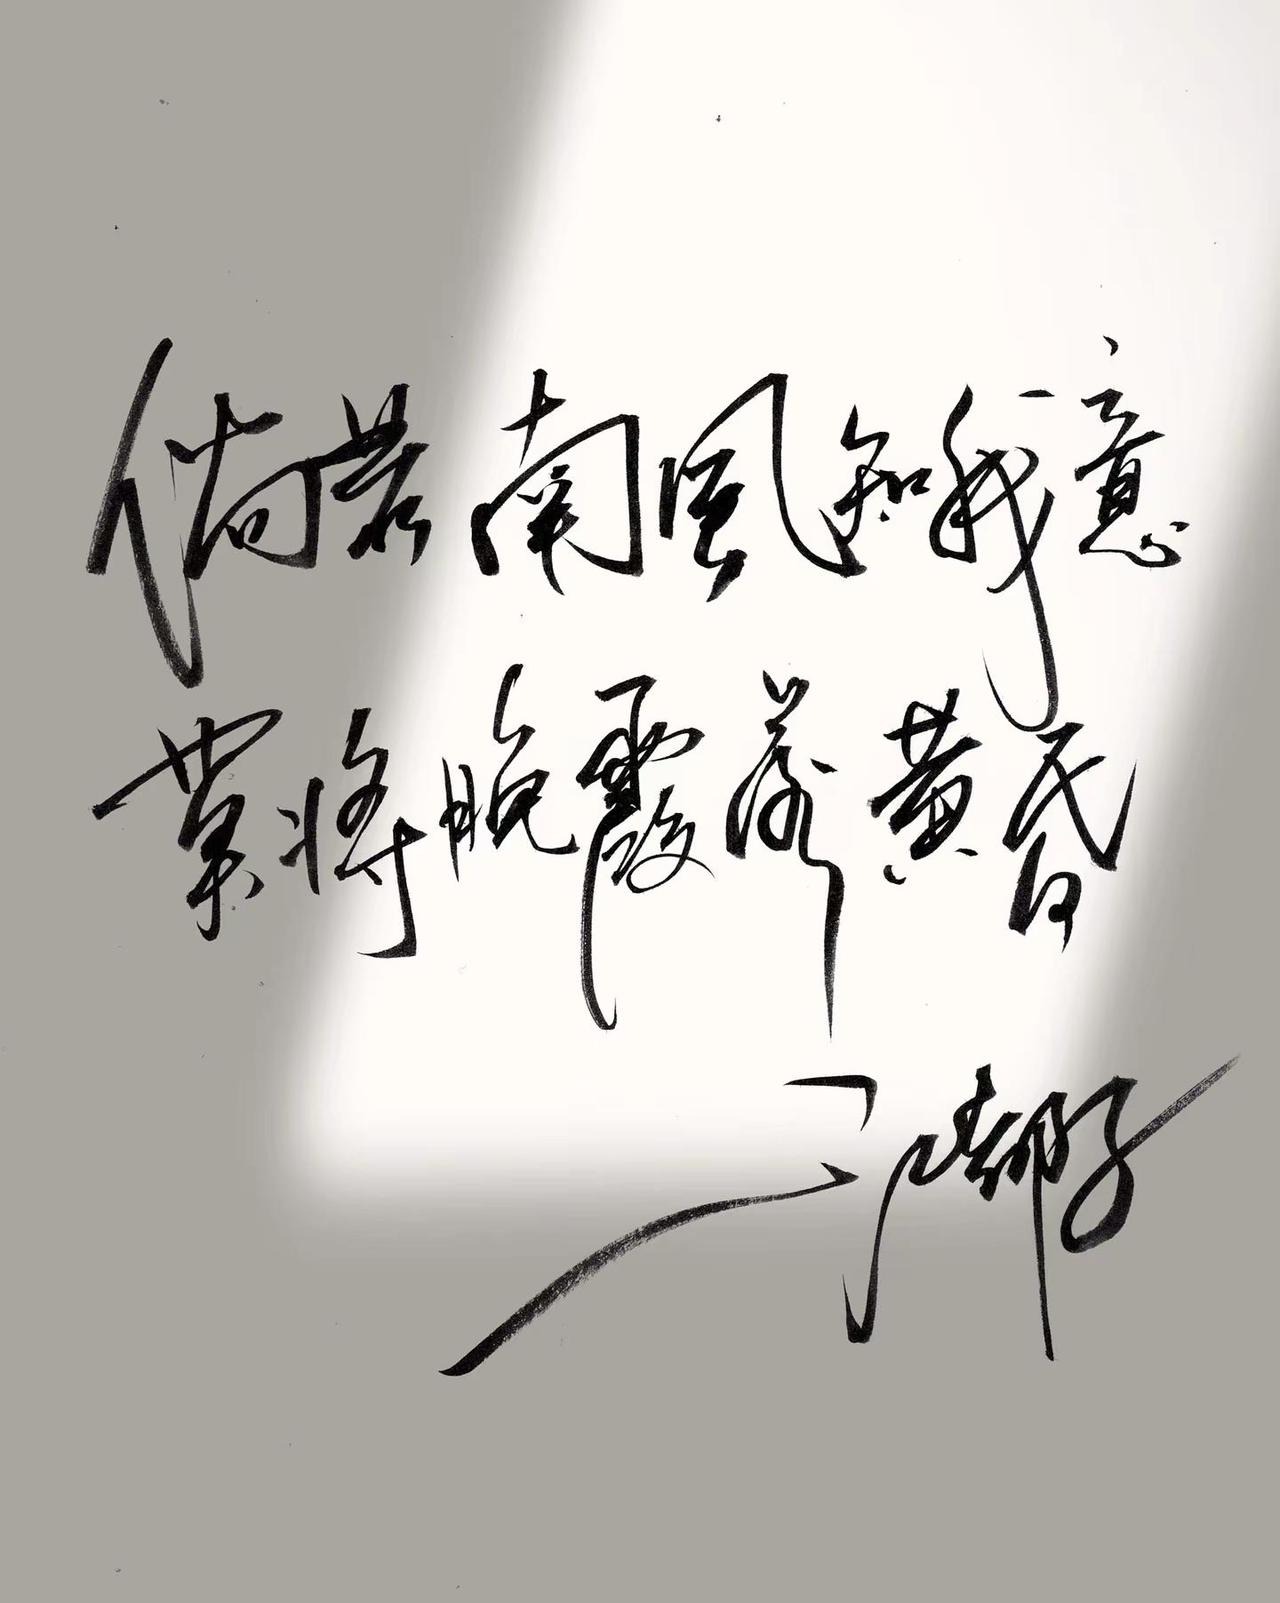 倘若南風知我意
莫将晚霞落黄昏